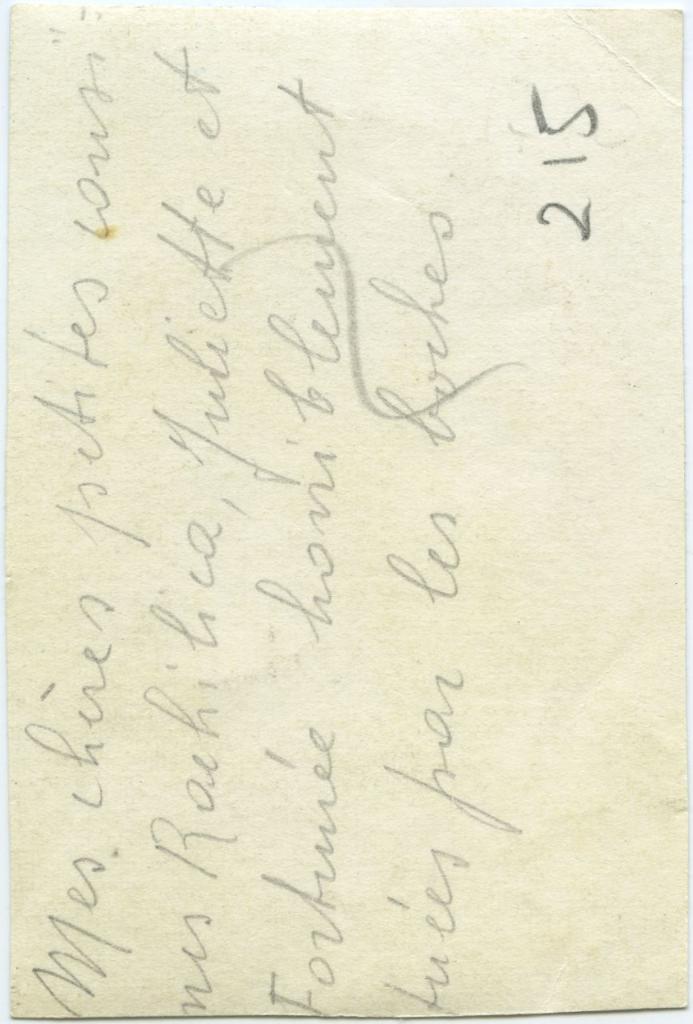 Mes chères petites cousi=
nes Rachilica, Juliette et
Fortunée horriblement
tuées par les boches
215